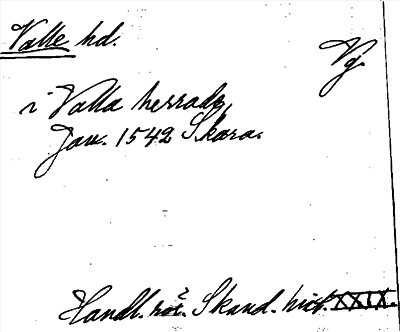 Valle hd.
Vg.
i Valla herrade,
Jan. 1542 Skara.
Handl. rör. Skand. hist. XXIX.